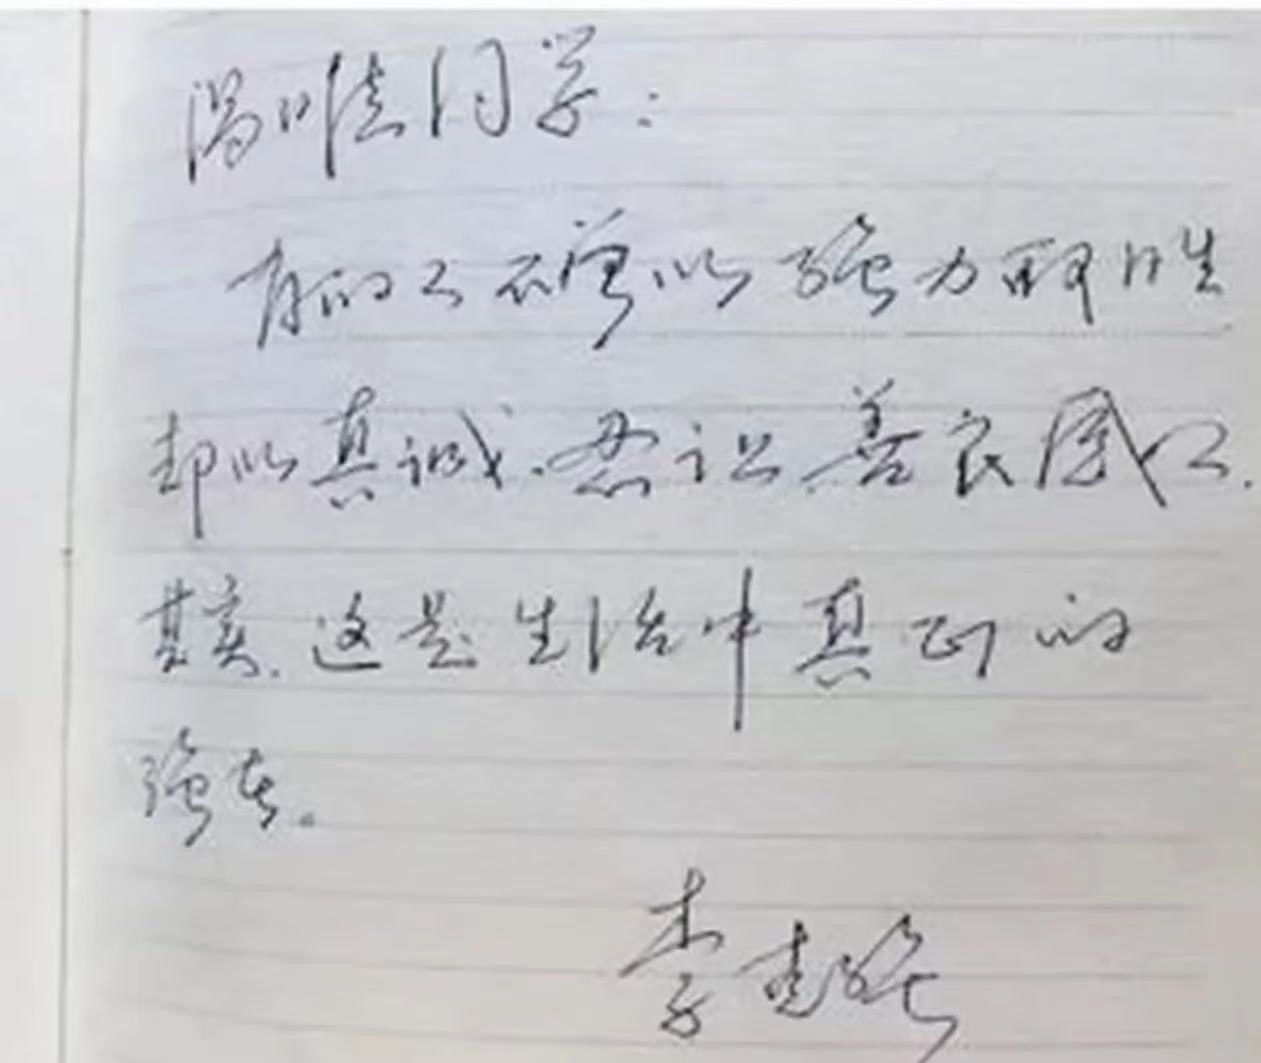 汤唯同学:
有的人不曾以强力取胜
却以真诚、忍让、善良感人.
其实,这是生活中真正的
强者。
李